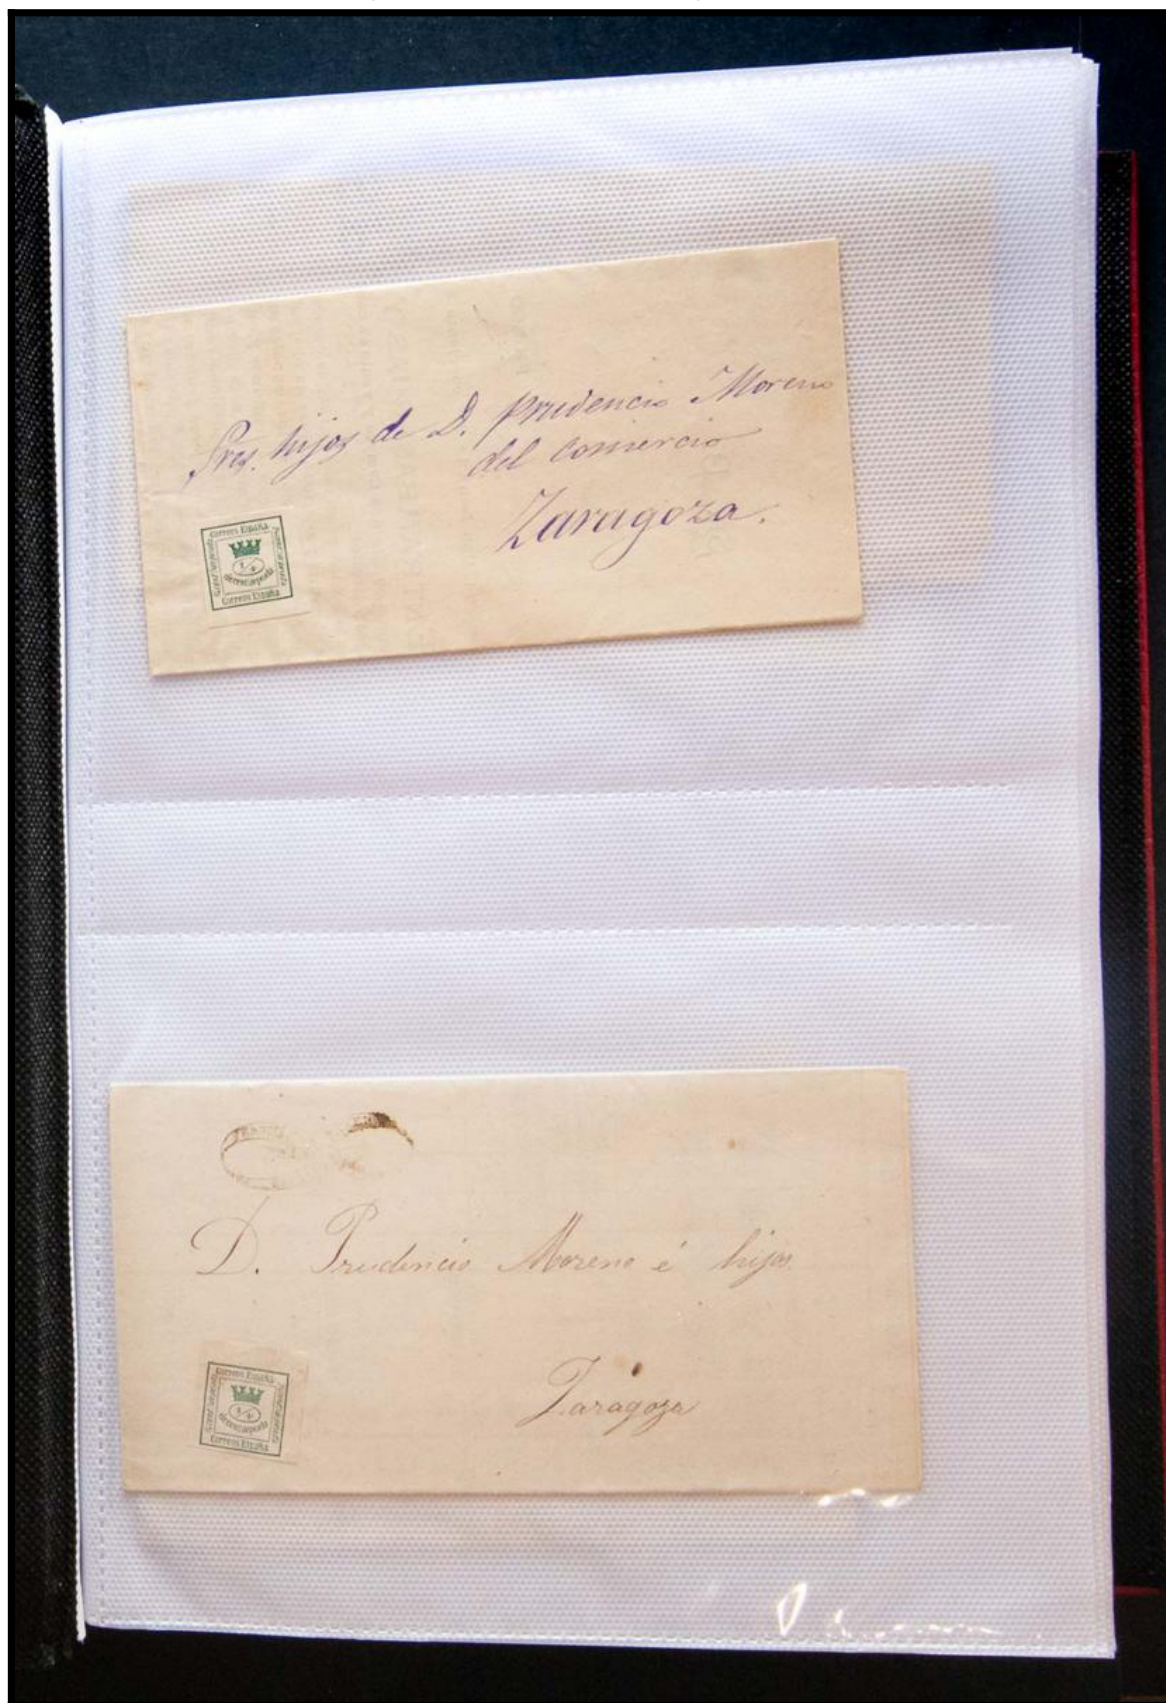 Sres. hijos de D. Prudencio Moreno
del comercio
Zaragoza.
Correos España
1/4
de cent. de peseta
Correos España
D. Prudencio Moreno é hijos
Zaragoza
Correos España
1/4
de cent. de peseta
Correos España